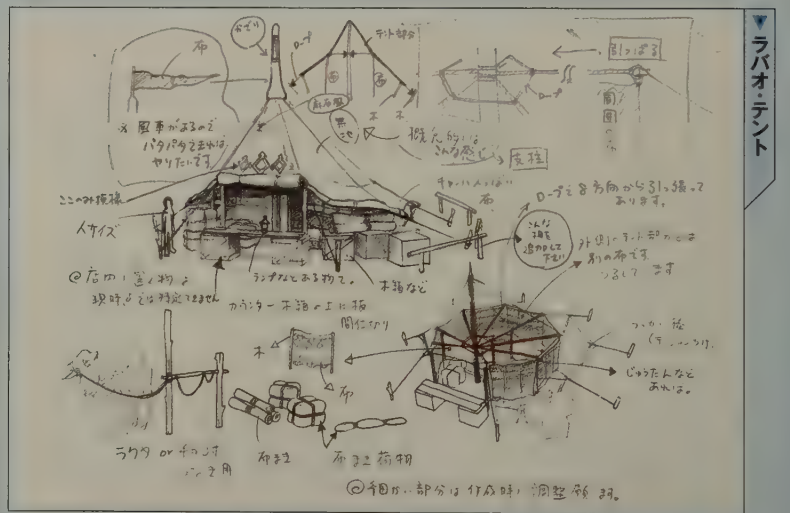 ラバオ・テント
かざり
布
ロープ
テント部分
布
布
木
木
引っぱる
ロープ
※ 風車があるので
パタパタできれば
やりたいです
概念的には
こんな感じ
支柱
ここのみ模様
人サイズ
布
ロープで8方向から引っ張って
あります。
こんな
棚を
追加して
下さい
外側のテント部分とは
別の布です
つるしてます
◎店内に置く物は
現時点では特定できません
ランプなどある物で。
木箱など
カウンター 木箱の上に板
間仕切り
木
布
じゅうたんなど
あれば。
ラクダ or チョコボ
つなぎ用
布まき
布まき荷物
◎細かい部分は作成時に調整願います。